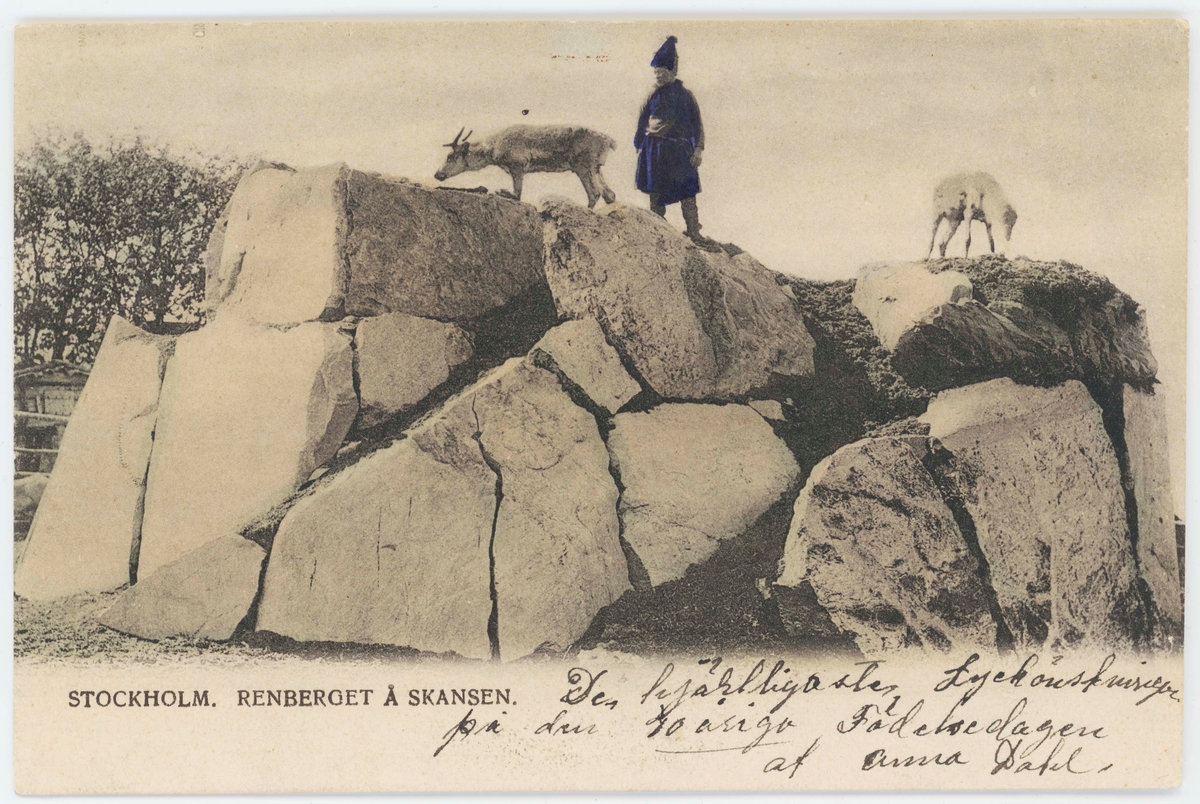 STOCKHOLM. RENBERGET Å SKANSEN.
De hjärtligaste Lyckönskningar
på den åriga Födelsedagen
af Anna Dahl.